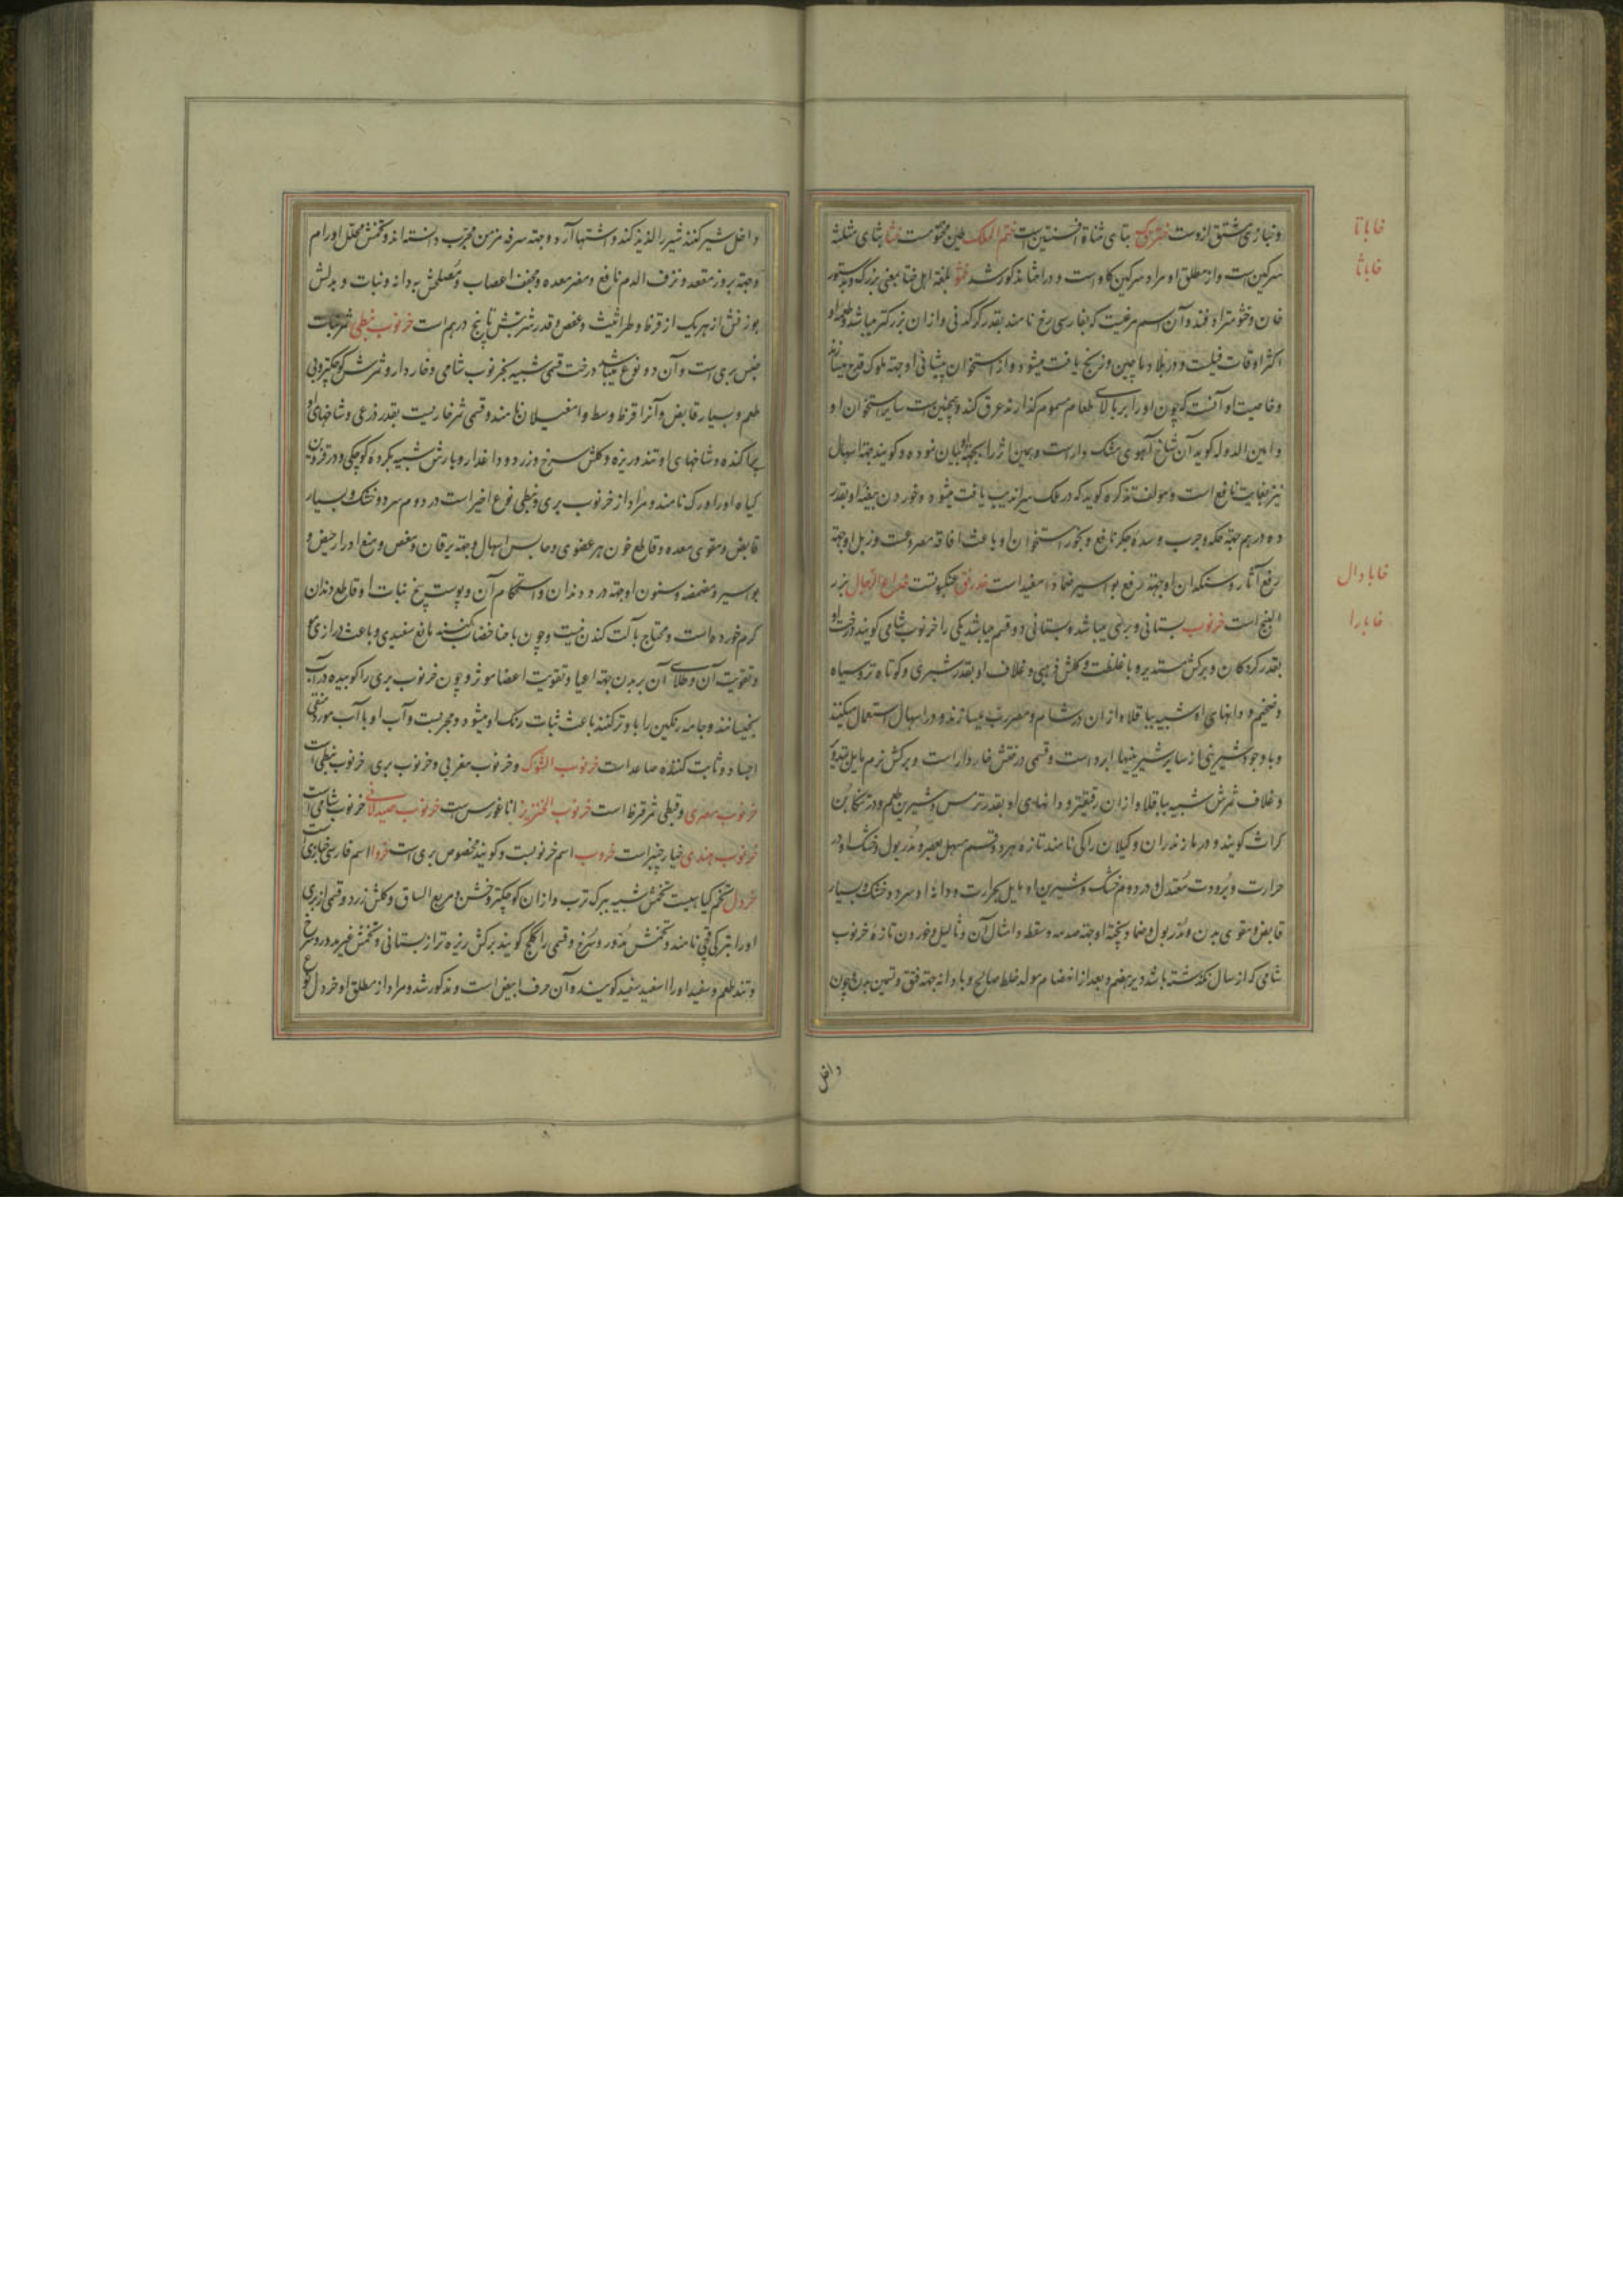 خا با تا
خا با ثا
خا با دال
خا با را
و نیازی مشتق ازوست بتای مثناة افسنتین است ختم الملک طین مختومست خثا بثای مثلثه
سرکین است و از مطلق او مراد سرکین کاو است و در اخثا مذکور شد ختو بلغة اهل ختا بمعنی بزرک و بدستور
خان و ختو مترادفند و آن اسم مرغیست که بفارسی رخ نامند بقدر کرکدنی و ازان بزرکتر میباشد و طعمه او
اکثر اوقات فیلست و در بلاد ماچین و زنج یافت میشود و از استخوان پیشانی او جهة ملوک قدح میسازند
و خاصیت او آنست که چون او را بر بالای طعام مسموم کذارند عرق کند و همچنین است سایر استخوان او
و امین الدوله کوید آن شاخ آهوی مشک دار است و همین اثر را بجهة او بیان نموده و کویند جهة اسهال
نیز بغایت نافع است و مولف تذکره کوید که در ملک سراندیب یافت میشود و خوردن بیضه او بقدر
ده درهم جهة حکه و جرب و سده جکر نافع و بخور استخوان او باعث افاقه مصروعست و زبل او جهة
رفع آثار و سنکدان او جهة رفع بواسیر ضمادا مفید است خدرنق عنکبوتست خداع الرجال بزر
البنج است خرنوب بستانی و بری میباشد و بستانی دو قسم میباشد یکی را خرنوب شامی کویند درخت او
بقدر کردکان و برکش مستدیر و با غلظت و کلش ذهبی و غلاف او بقدر شبری و کوتاه تر و سیاه
و ضخیم و دانهای او شبیه بباقلا و ازان در شام و مصر رب میسازند و در اسهال استعمال میکنند
و با وجود شیرینی از سایر شیرینیها ابرد است و قسمی درختش خاردار است و برکش نرم مایل بتدویر
و غلاف ثمرش شبیه بباقلا و ازان رقیقتر و دانهای او بقدر ترمس و شیرین طعم و در تنکابن
کراث کویند و در مازندران و کیلان راکی نامند تازه هر دو قسم مسهل بعصر و مدر بول و خشک او در
حرارت و برودت معتدل و در دوم خشک و شیرین او مایل بحرارت و دانه او سرد و خشک و بسیار
قابض و مقوی بدن و مدر بول و ضماد پخته او جهة صدمه و سقطه و امثال آن و ثالیل و خوردن تازه خرنوب
شامی که از سال نکذشته باشد دیرهضم و بعد از انهضام مولد خلط صالح و با دانه جهة فتق و تسمین بدن و چون
داخل
داخل شیر کنند شیر را لذیذ کند و اشتها آرد و جهة سرفه مزمن مجرب دانسته اند و تخمش محلل اورام
و جهة بروز مقعد و نزف الدم نافع و مضر معده و مجفف اعصاب و مصلحش به دانه و نبات و بدلش
بوزنش از هر یک از قرظ و طراثیث و عفص و قدر شربتش تا پنج درهم است خرنوب نبطی ثمر نبات
جنس بری است و آن دو نوع میباشد درخت قسمی شبیه بخرنوب شامی و خاردار و ثمرش کوچکتر و بی
طعم و بسیار قابض و آنرا قرظ و سط و ام غیلان نامند و قسمی ثمر خاریست بقدر ذرعی و شاخهای او
پراکنده و شاخهای او تند و ریزه و کلش سرخ و زرد و داغدار و بارش شبیه بکرده کوچکی و در قزوین
کیاه او را ورک نامند و مراد از خرنوب بری و نبطی نوع اخیر است در دوم سرد و خشک و بسیار
قابض و مقوی معده و قاطع خون هر عضوی و حابس اسهال و جهة یرقان و مغص و منع ادرار حیض و
بواسیر و مضمضه و سنون او جهة درد دندان و استحکام آن و پوست بیخ نبات او قاطع دندان
کرم خورده است و محتاج بآلت کندن نیست و چون با حنا خضاب کنند مانع سفیدی و باعث درازی مو
و تقویت آن و طلای آن بر بدن جهة اعیا و تقویت اعضا موثر و چون خرنوب بری را کوبیده در آب
بخیسانند و جامه رنکین را باو تر کنند باعث ثبات رنک او میشود و مجربست و آب او با آب مورد منقی
اجساد و ثابت کننده صاعد است خرنوب الشوک و خرنوب مغربی و خرنوب بری خرنوب نبطی است
خرنوب مصری و قبطی ثمر قرظ است خرنوب الخنزیر اناغورس است خرنوب صیدلانی خرنوب شامی است
خرنوب هندی خیارچنبر است خروب اسم خرنوبست و کویند مخصوص بری است خروا اسم فارسی خبازی است
خردل تخم کیاهیست تخمش شبیه ببرک ترب و ازان کوچکتر و خشن و مربع الساق و کلش زرد و قسمی از بری
او را بترکی قچی نامند و تخمش مدور و سرخ و قسمی را کلکج کویند برکش ریزه تر از بستانی و تخمش غیر مدور و سرخ
و تند طعم و سفید او را اسفید سفید کویند و آن حرف ابیض است و مذکور شد و مراد از مطلق او خردل